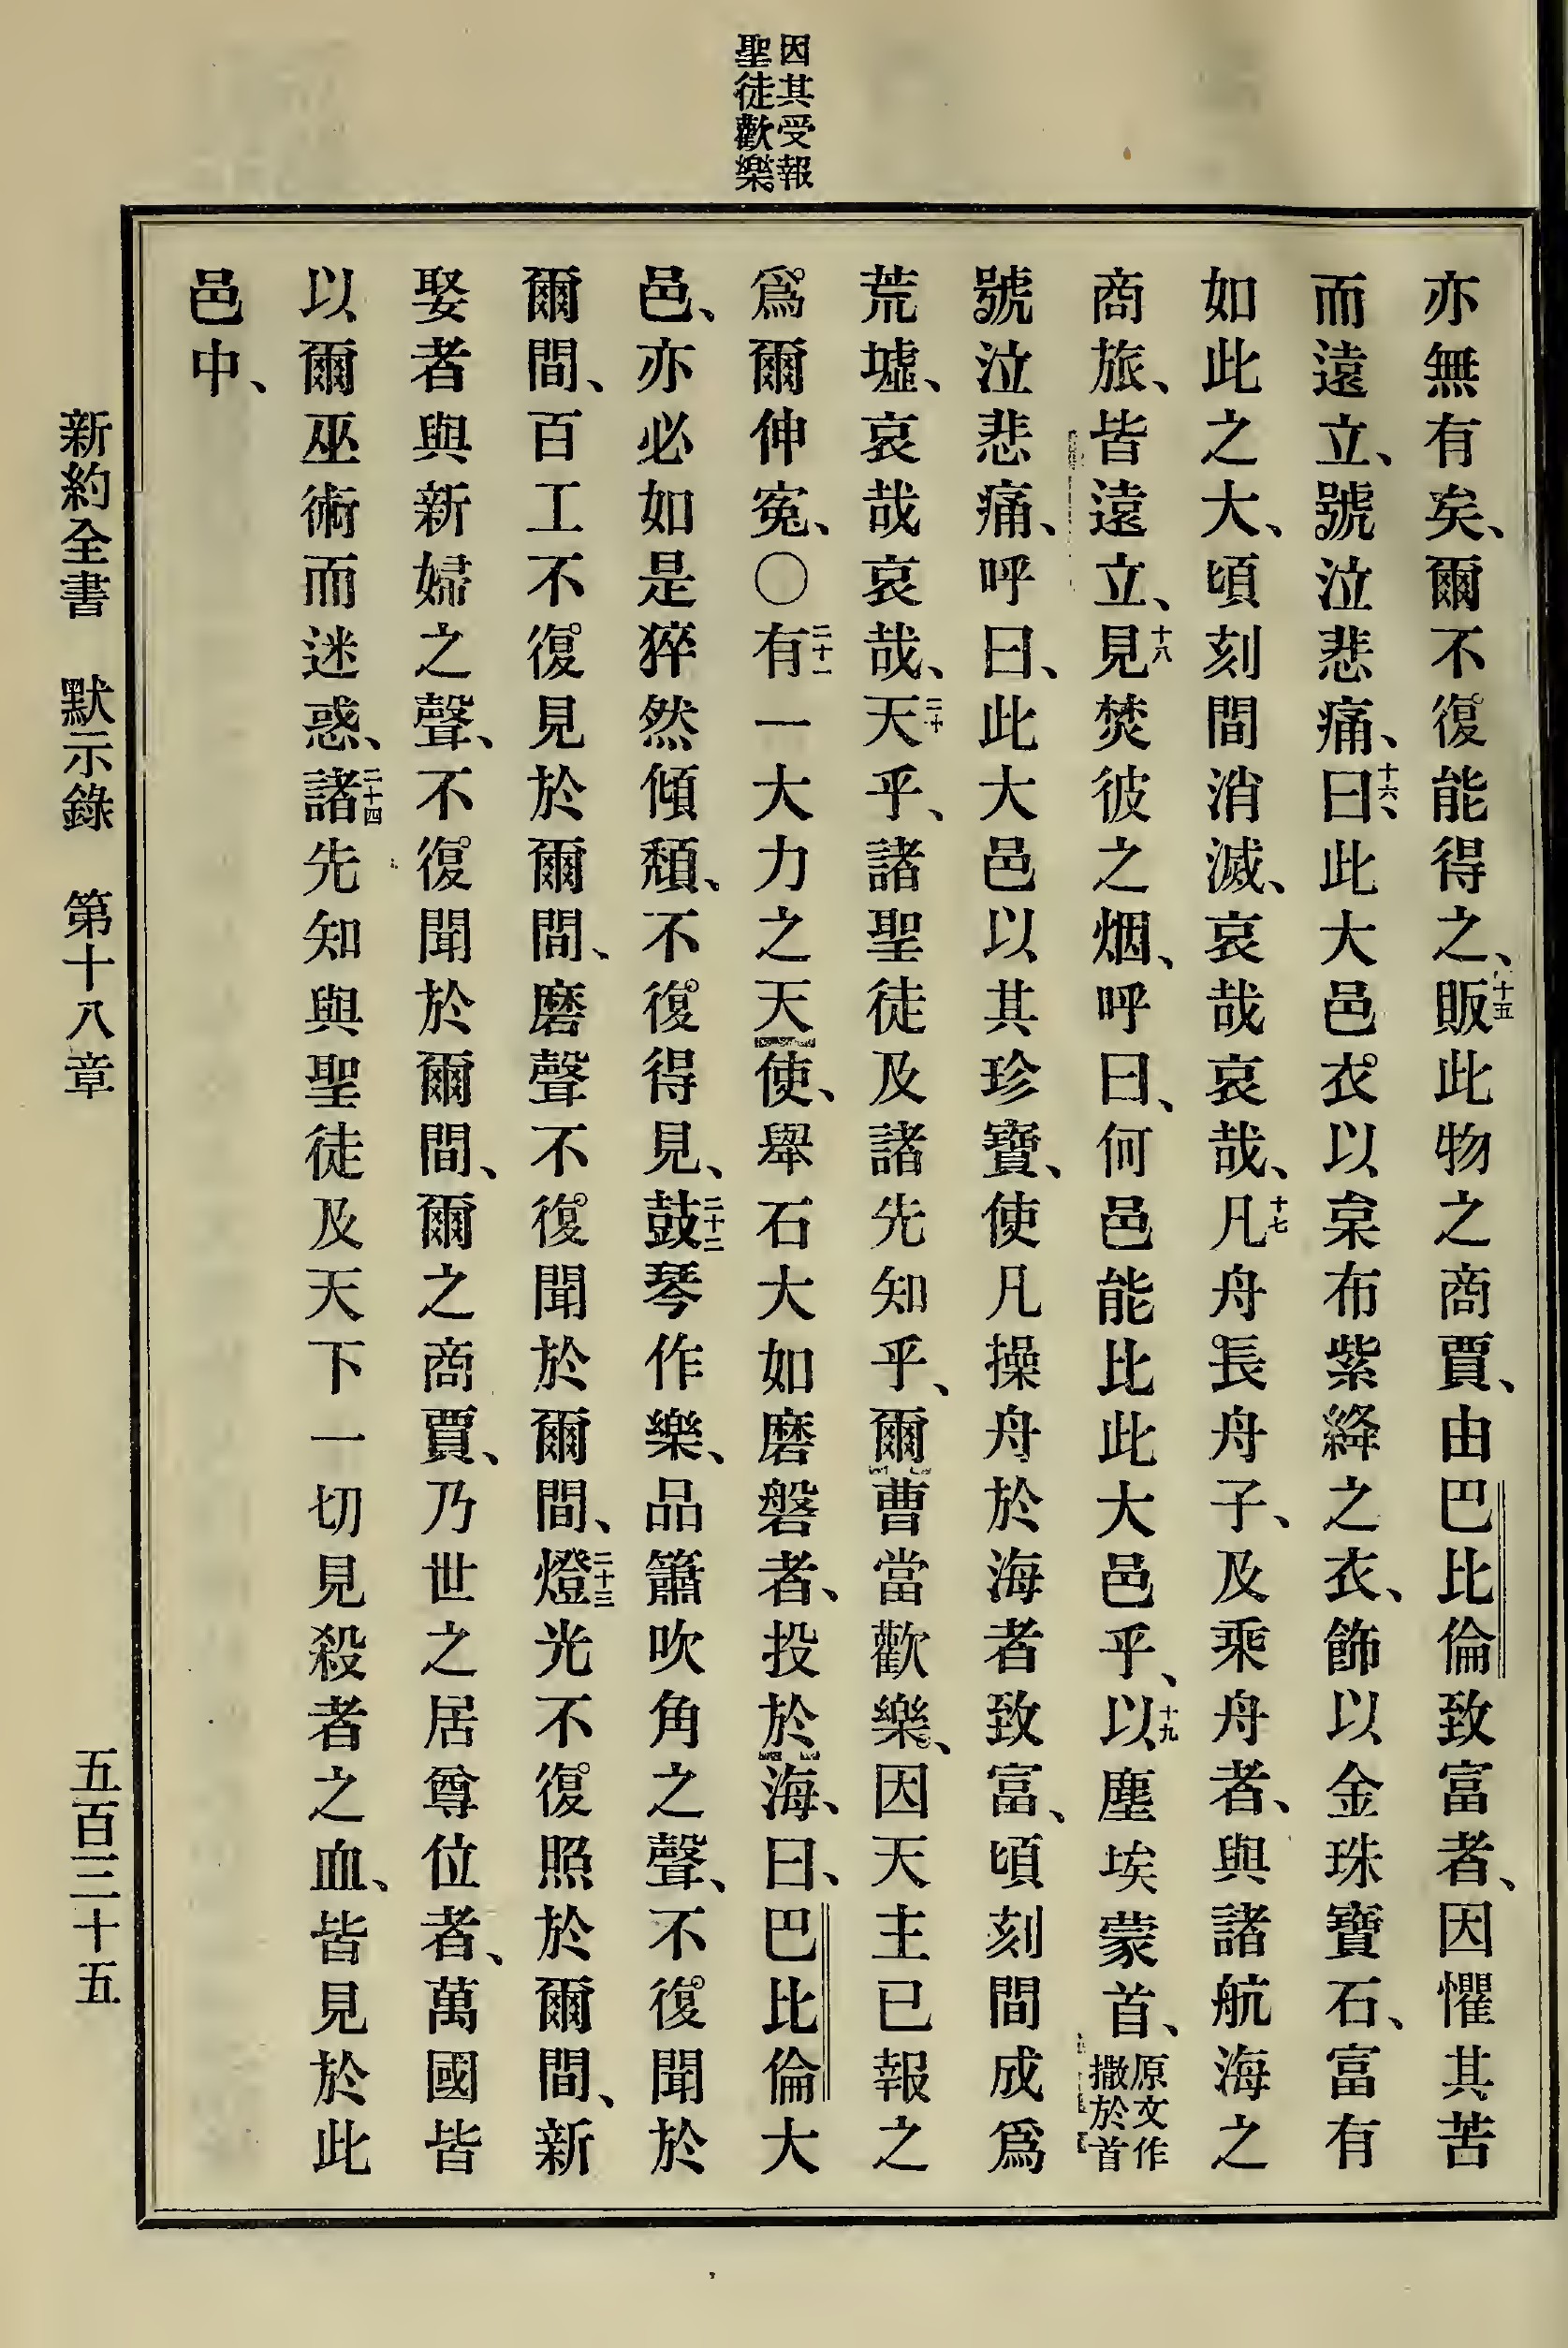 因其受報
聖徒歡樂
亦無有矣、爾不復能得之、十五販此物之商賈、由巴比倫致富者、因懼其苦
而遠立、號泣悲痛、十六曰、此大邑衣以枲布紫絳之衣、飾以金珠寶石、富有
如此之大、頃刻間消滅、哀哉哀哉、十七凡舟長舟子、及乘舟者、與諸航海之
商旅、皆遠立、十八見焚彼之烟、呼曰、何邑能比此大邑乎、十九以塵埃蒙首、原文作撒於首
號泣悲痛、呼曰、此大邑以其珍寶、使凡操舟於海者致富、頃刻間成爲
荒墟、哀哉哀哉、二十天乎、諸聖徒及諸先知乎、爾曹當歡樂、因天主已報之
爲爾伸寃、〇二十一有一大力之天使、舉石大如磨磐者、投於海、曰、巴比倫大
邑、亦必如是猝然傾頹、不復得見、二十二鼓琴作樂、品簫吹角之聲、不復聞於
爾間、百工不復見於爾間、磨聲不復聞於爾間、二十三燈光不復照於爾間、新
娶者與新婦之聲、不復聞於爾間、爾之商賈、乃世之居尊位者、萬國皆
以爾巫術而迷惑、二十四諸先知與聖徒及天下一切見殺者之血、皆見於此
邑中、
新約全書 默示錄 第十八章 五百三十五